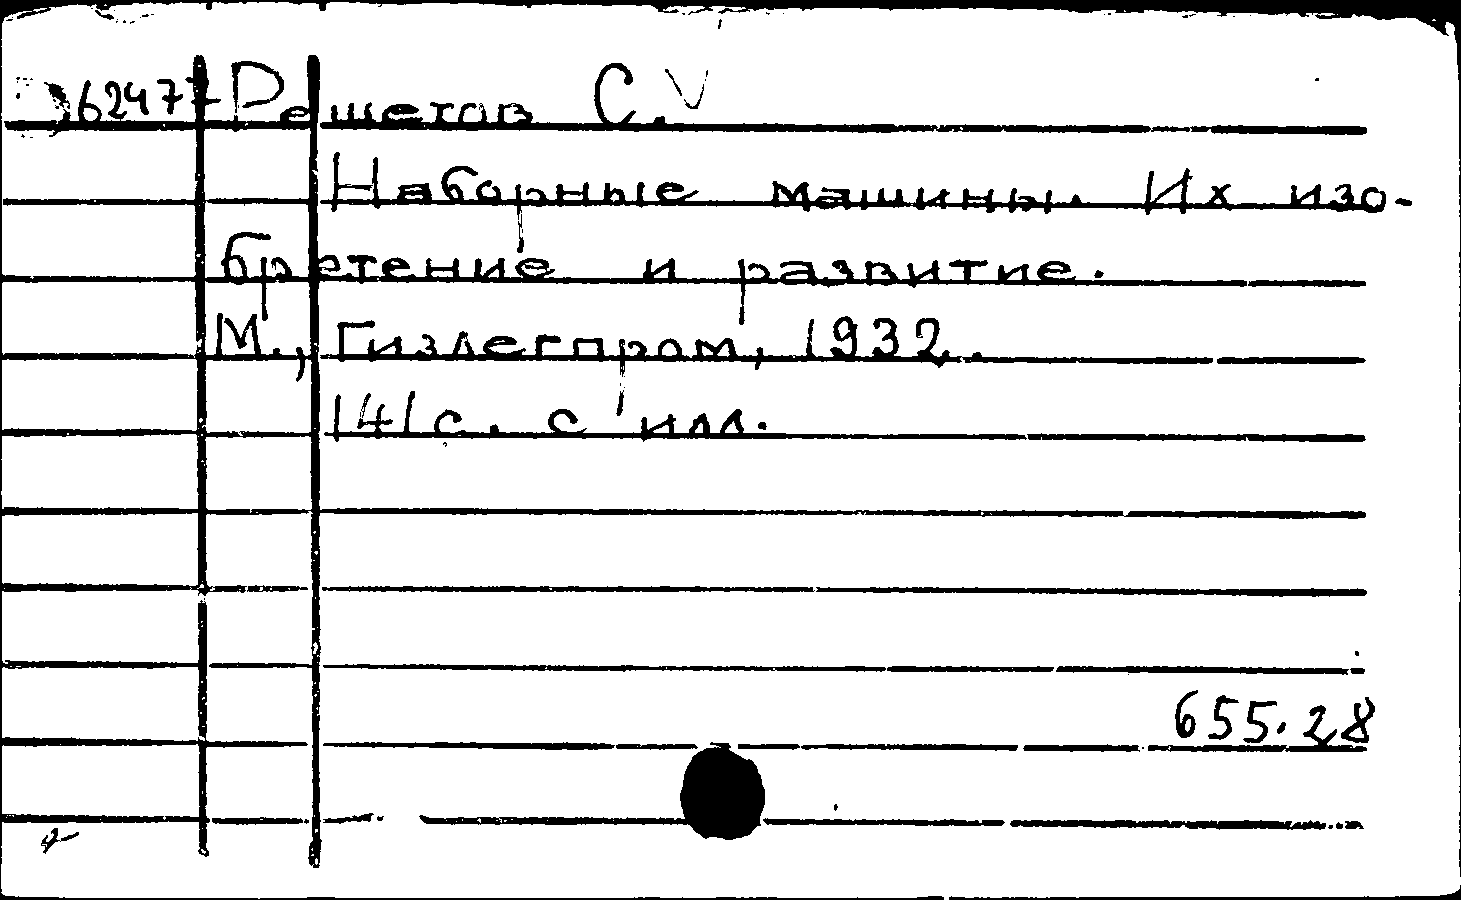 62477 Решетов С.
Наборные машины. Их изо-
бретение и развитие.
М., Гизлегпром, 1932.
141 с. с илл.
655.28